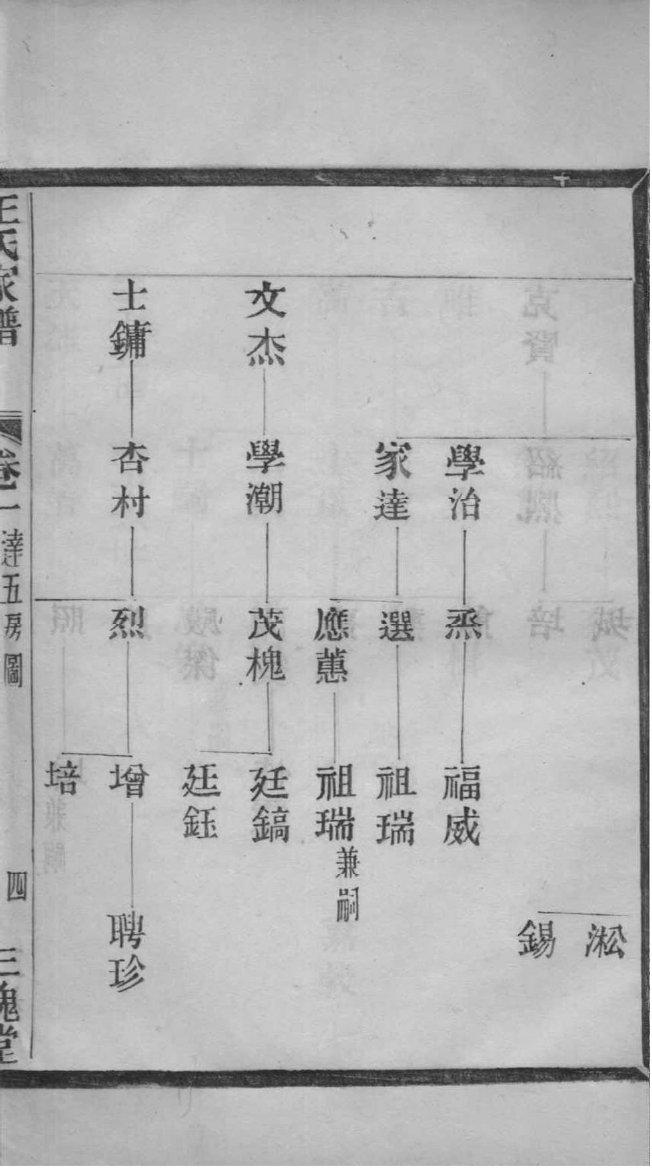 淞
錫
學治
烝
福威
家達
選
祖瑞
應蕙
祖瑞兼嗣
文杰
學潮
茂槐
廷鎬
廷鈺
士鏞
杏村
烈
增
聘珍
培
王氏家譜
卷一
達五房圖
四
三槐堂